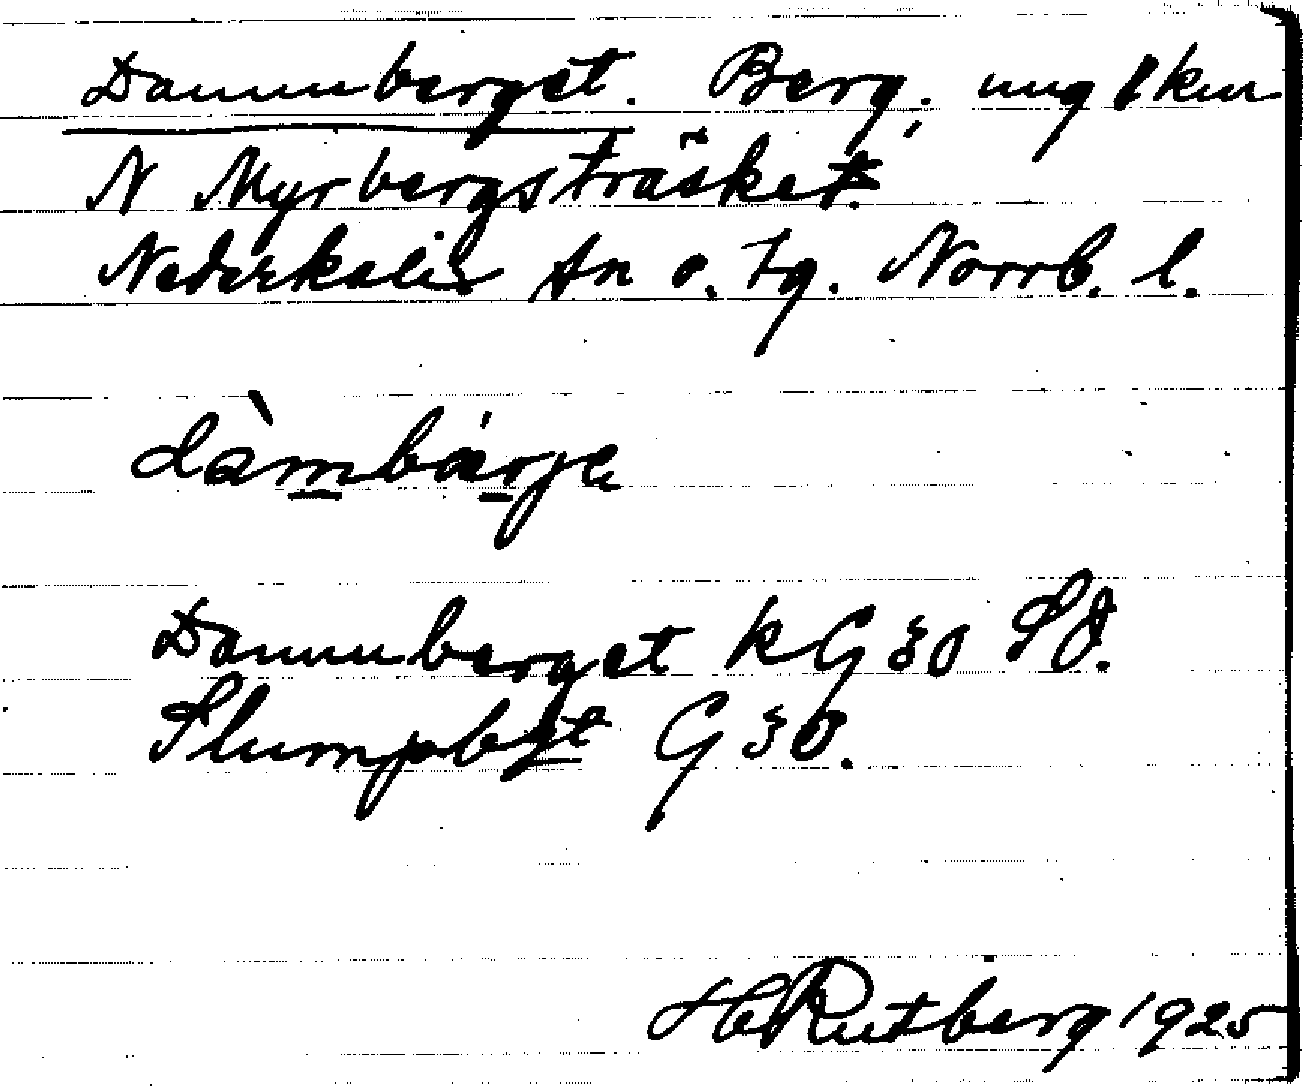 Dammberget. Berg, ung 1 km
N Myrbergsträsket.
Nederkalix sn o. tg. Norrb. l.
dàmbärje
Dammberget kG 30 SV.
Slumpbgt G 30.
H Rutberg 1925